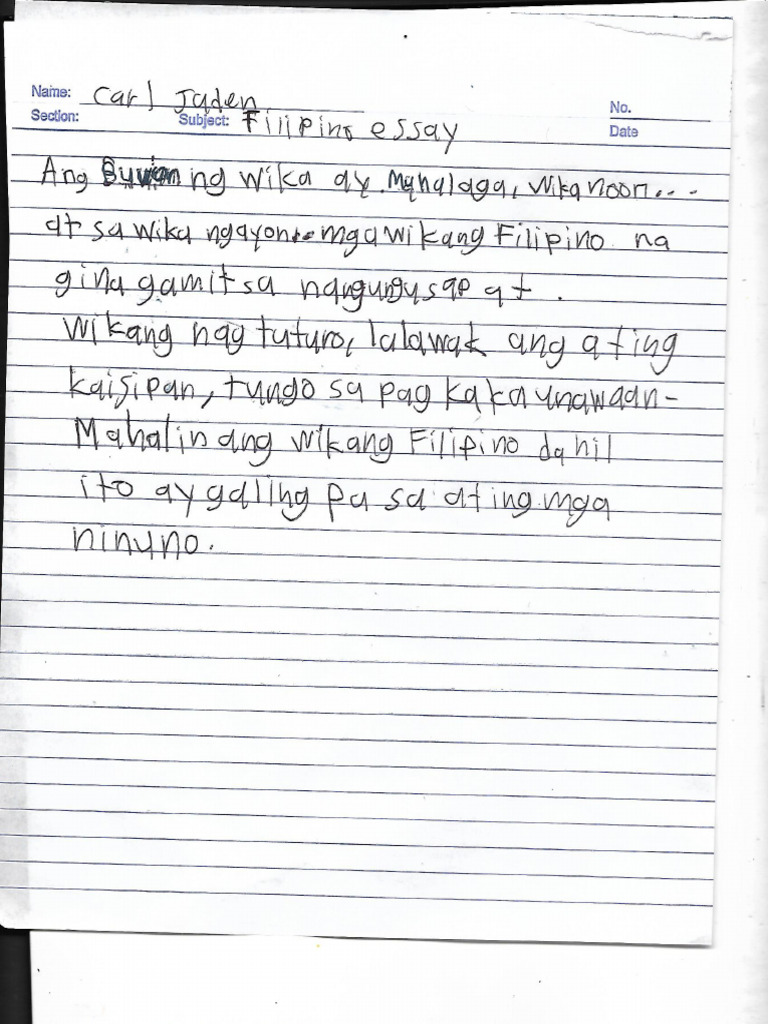 Name: Carl Jaden No.
Section: Subject: Filipino essay Date
Ang Buwan ng wika ay mahalaga, wika noon...
at sa wika ngayon... mga wikang Filipino na
ginagamit sa nangungusap at.
wikang nagtuturo, lalawak ang ating
kaisipan, tungo sa pag kakaunawaan-
Mahalin ang wikang Filipino dahil
ito ay galing pa sa ating mga
ninuno.